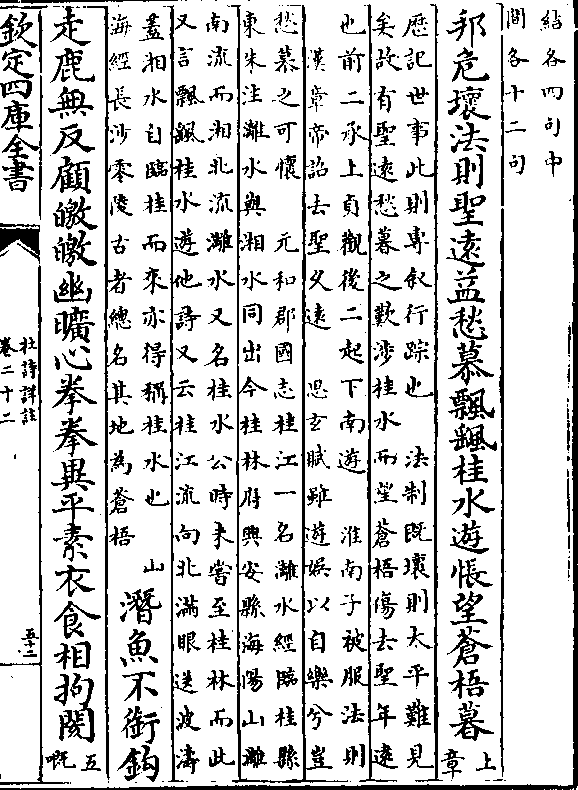 結各四句中
間各十二句
邦危壞法則聖遠益愁慕飄颻桂水遊悵望蒼梧暮上
章
歴記世事此則專叙行踪也　法制既壞則太平難見
矣故有聖遠愁暮之歎涉桂水而望蒼梧傷去聖年遠
也前二承上貞觀後二起下南遊　淮南子被服法則
漢章帝詔去聖久遠　思玄賦雖遊娱以自樂兮豈
愁慕之可懷　元和郡國志桂江一名灕水經臨桂縣
東朱注灕水與湘水同出今桂林府興安縣海陽山灕
南流而湘北流灕水又名桂水公時未嘗至桂林而此
又言飄颻桂水遊他詩又云桂江流向北滿眼送波濤
蓋湘水自臨桂而來亦得稱桂水也　山
海經長沙零陵古者總名其地為蒼梧
潛魚不銜鈎
走鹿無反顧皦皦幽曠心拳拳異平素衣食相拘閡五
嘅
欽定四庫全書
杜詩詳註
卷二十二
五十二